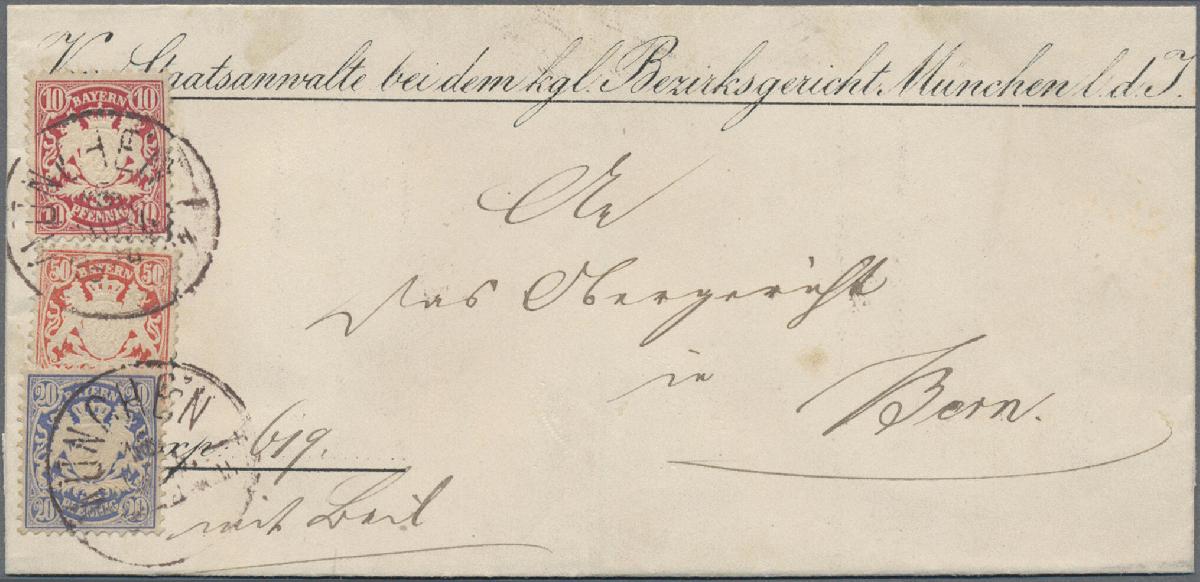 Staatsanwalte bei dem kgl. Bezirksgericht München l. d. I.
10 BAYERN 10
10 PFENNIG 10
MÜNCHEN I
An
das Obergericht
in
Bern.
50 BAYERN 50
20 BAYERN 20
20 PFENNIG 20
MÜNCHEN
Exp. 619.
mit Beil